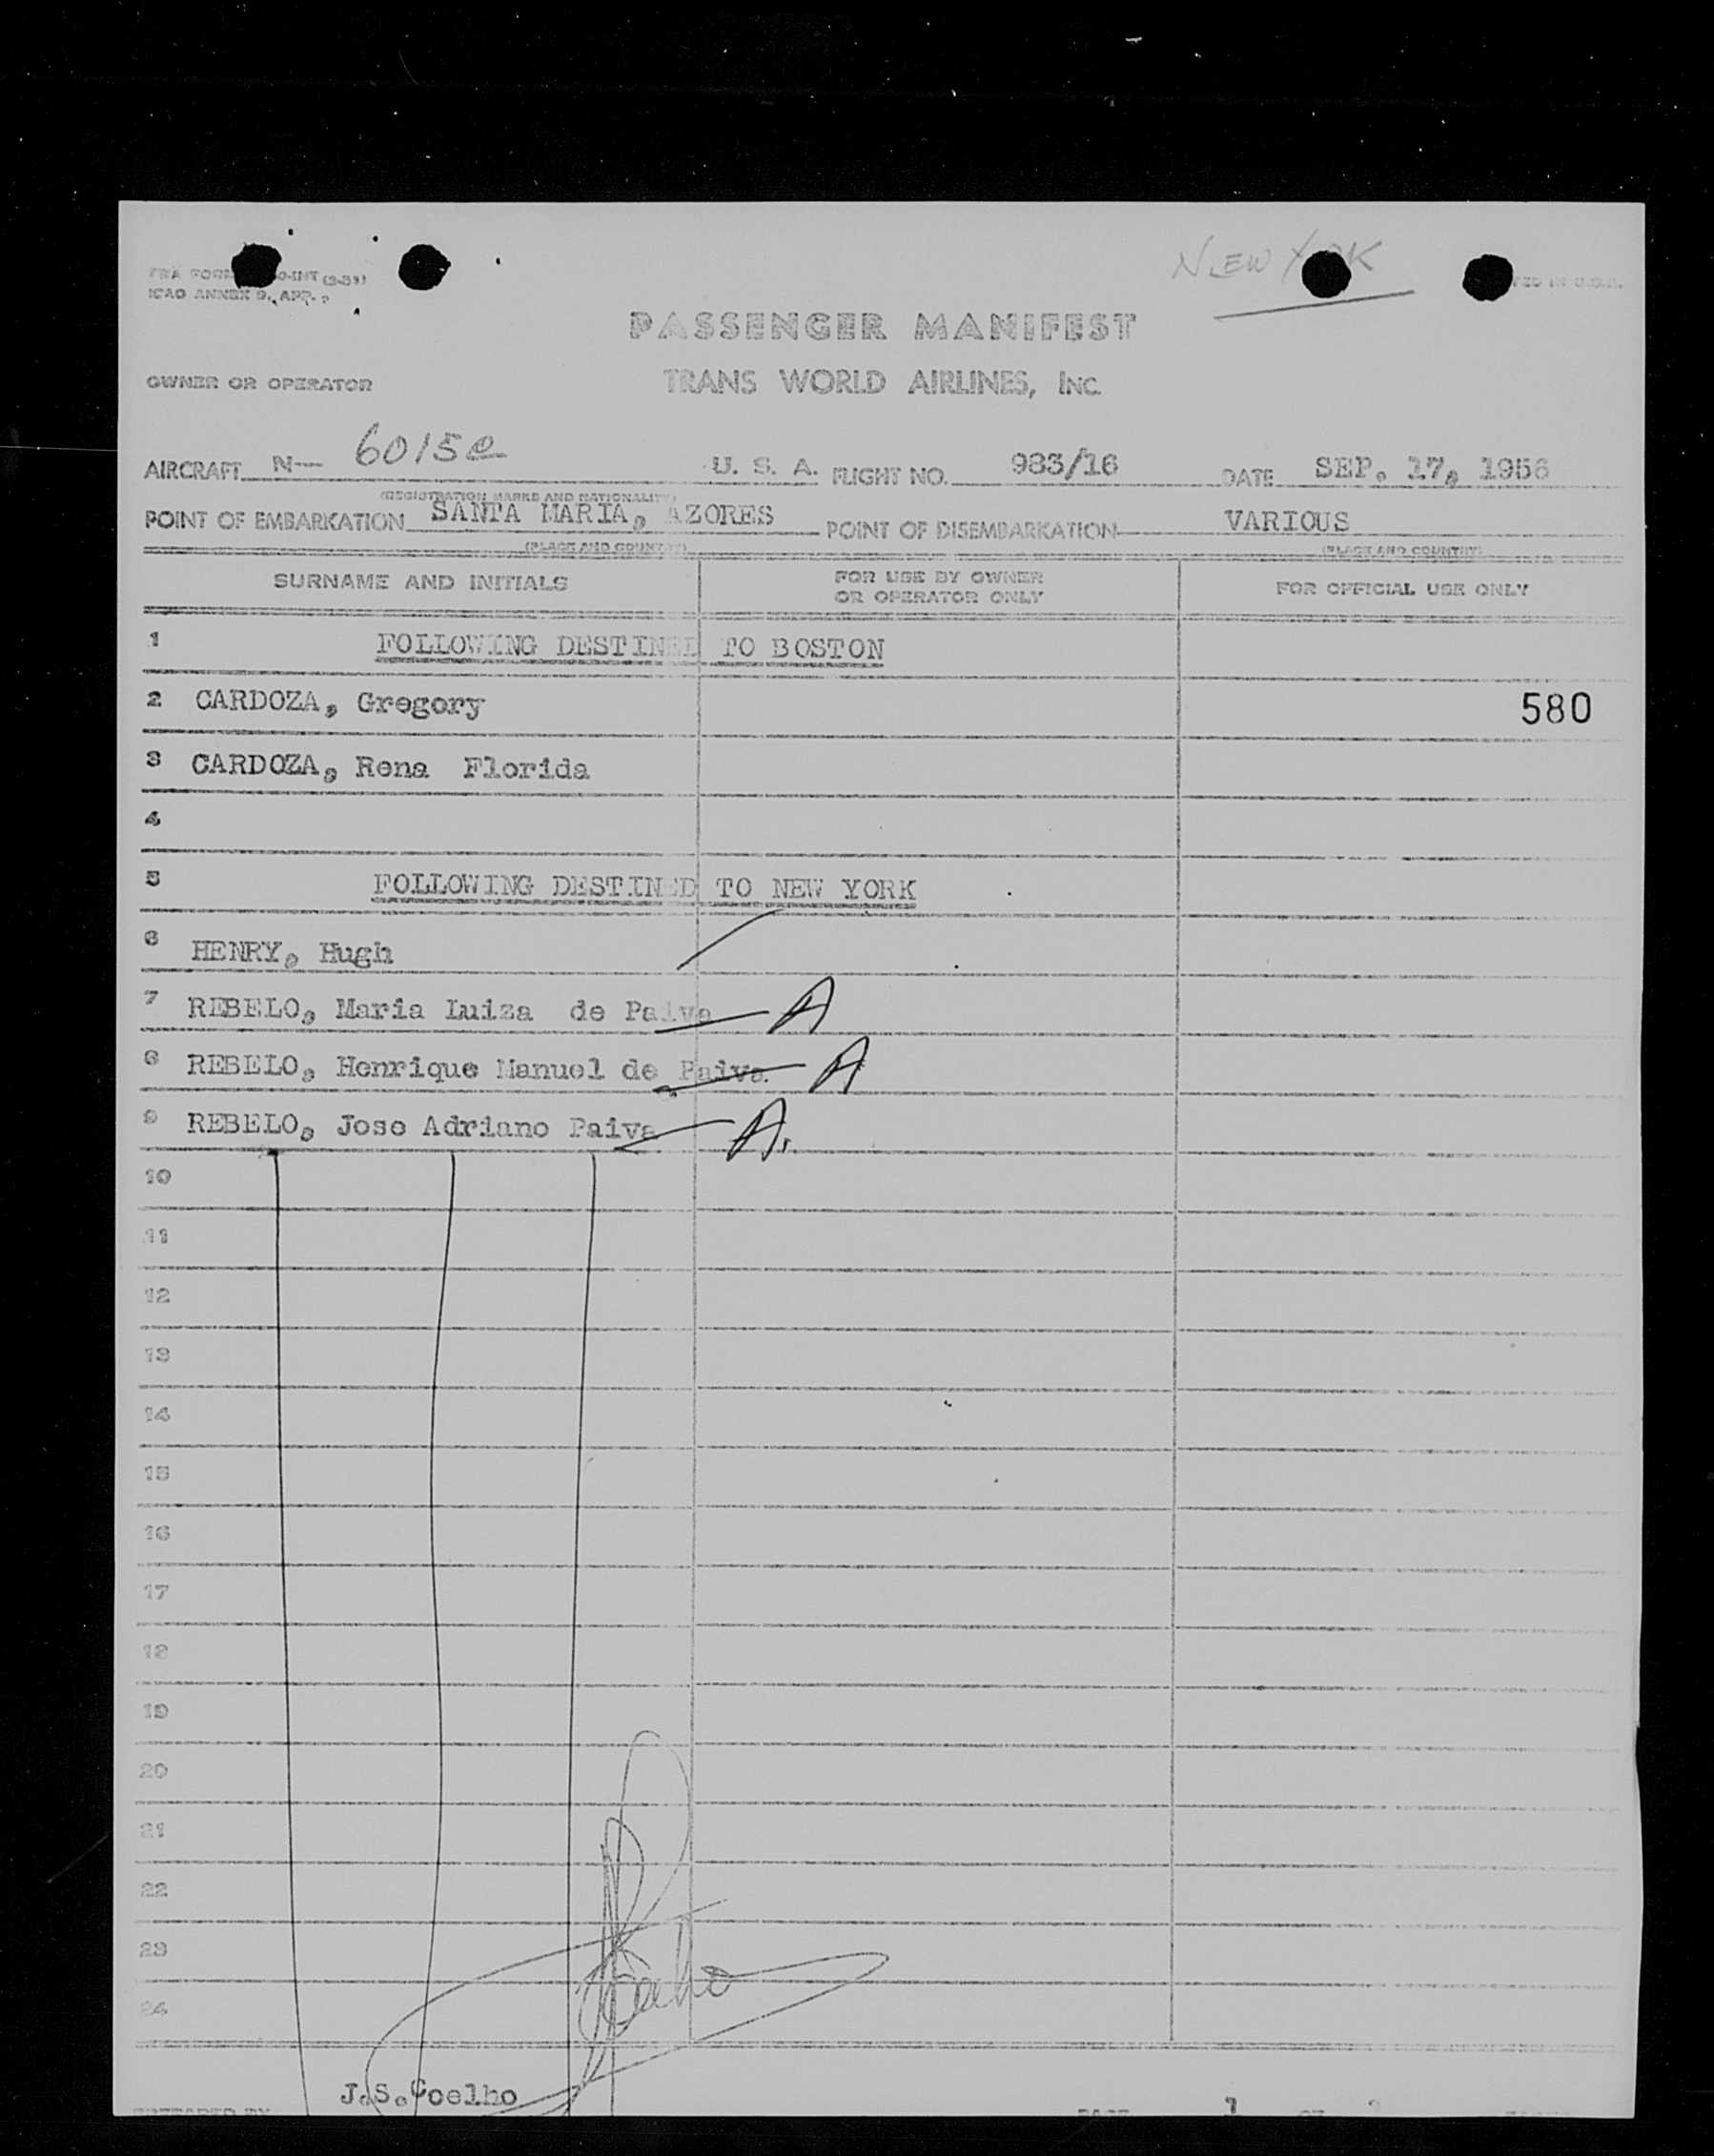 NEW YORK
ICAO ANNEX 9, APP.
PASSENGER MANIFEST
OWNER OR OPERATOR TRANS WORLD AIRLINES, INC.
AIRCRAFT N— 6015C U. S. A. FLIGHT NO. 983/16 DATE SEP. 17, 1956
(REGISTRATION MARKS AND NATIONALITY)
POINT OF EMBARKATION SANTA MARIA, AZORES POINT OF DISEMBARKATION VARIOUS
(PLACE AND COUNTRY) (PLACE AND COUNTRY)
SURNAME AND INITIALS FOR USE BY OWNER OR OPERATOR ONLY FOR OFFICIAL USE ONLY
1 FOLLOWING DESTINED TO BOSTON
2 CARDOZA, Gregory 580
3 CARDOZA, Rena Florida
4
5 FOLLOWING DESTINED TO NEW YORK
6 HENRY, Hugh
7 REBELO, Maria Luiza de Paiva A
8 REBELO, Henrique Manuel de Paiva. A
9 REBELO, Jose Adriano Paiva A.
10
11
12
13
14
15
16
17
18
19
20
21
22
23
24
Coelho
J.S.Coelho
PREPARED BY PAGE 1 OF